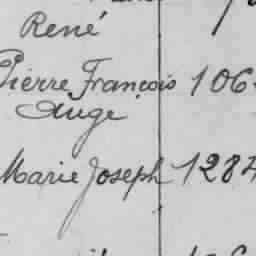 René
Pierre François 106
Auge
Marie Joseph 1284